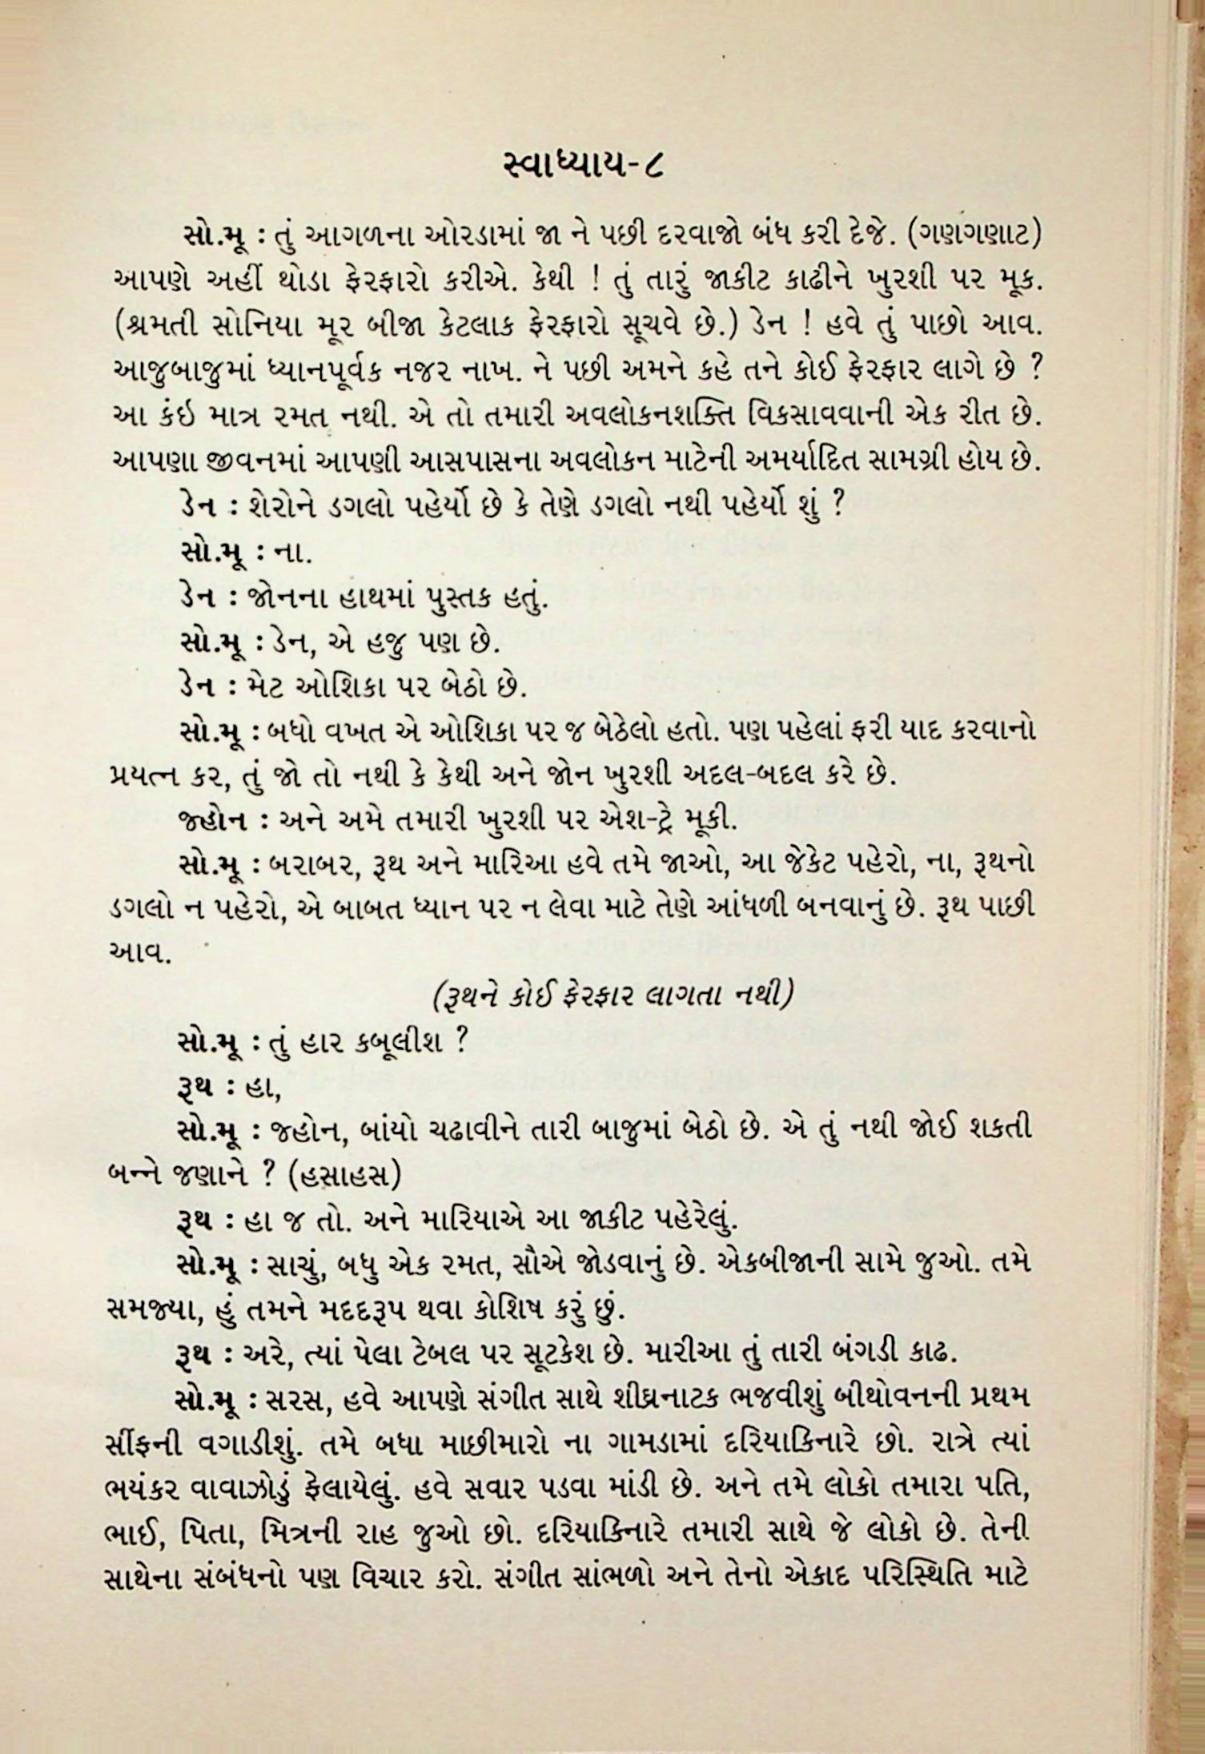 સ્વાધ્યાય-૮
સો.મૂ : તું આગળના ઓરડામાં જા ને પછી દરવાજો બંધ કરી દેજે. (ગણગણાટ)
આપણે અહીં થોડા ફેરફારો કરીએ. કેથી ! તું તારું જાકીટ કાઢીને ખુરશી પર મૂક.
(શ્રમતી સોનિયા મૂર બીજા કેટલાક ફેરફારો સૂચવે છે.) ડેન ! હવે તું પાછો આવ.
આજુબાજુમાં ધ્યાનપૂર્વક નજર નાખ. ને પછી અમને કહે તને કોઈ ફેરફાર લાગે છે ?
આ કંઇ માત્ર રમત નથી. એ તો તમારી અવલોકનશક્તિ વિકસાવવાની એક રીત છે.
આપણા જીવનમાં આપણી આસપાસના અવલોકન માટેની અમર્યાદિત સામગ્રી હોય છે.
ડેન : શેરોને ડગલો પહેર્યો છે કે તેણે ડગલો નથી પહેર્યો શું ?
સો.મૂ : ના.
ડેન : જોનના હાથમાં પુસ્તક હતું.
સો.મૂ : ડેન, એ હજુ પણ છે.
ડેન : મેટ ઓશિકા પર બેઠો છે.
સો.મૂ : બધો વખત એ ઓશિકા પર જ બેઠેલો હતો. પણ પહેલાં ફરી યાદ કરવાનો
પ્રયત્ન કર, તું જો તો નથી કે કેથી અને જોન ખુરશી અદલ-બદલ કરે છે.
જ્હોન : અને અમે તમારી ખુરશી પર એશ-ટ્રે મૂકી.
સો.મૂ : બરાબર, રૂથ અને મારિઆ હવે તમે જાઓ, આ જેકેટ પહેરો, ના, રૂથનો
ડગલો ન પહેરો, એ બાબત ધ્યાન પર ન લેવા માટે તેણે આંધળી બનવાનું છે. રૂથ પાછી
આવ.
(રૂથને કોઈ ફેરફાર લાગતા નથી)
સો.મૂ : તું હાર કબૂલીશ ?
રૂથ : હા,
સો.મૂ : જ્હોન, બાંયો ચઢાવીને તારી બાજુમાં બેઠો છે. એ તું નથી જોઈ શકતી
બન્ને જણાને ? (હસાહસ)
રૂથ : હા જ તો. અને મારિયાએ આ જાકીટ પહેરેલું.
સો.મૂ : સાચું, બધુ એક રમત, સૌએ જોડવાનું છે. એકબીજાની સામે જુઓ. તમે
સમજ્યા, હું તમને મદદરૂપ થવા કોશિષ કરું છું.
રૂથ : અરે, ત્યાં પેલા ટેબલ પર સૂટકેશ છે. મારીઆ તું તારી બંગડી કાઢ.
સો.મૂ : સરસ, હવે આપણે સંગીત સાથે શીઘ્રનાટક ભજવીશું બીથોવનની પ્રથમ
સીંફની વગાડીશું. તમે બધા માછીમારો ના ગામડામાં દરિયાકિનારે છો. રાત્રે ત્યાં
ભયંકર વાવાઝોડું ફેલાયેલું. હવે સવાર પડવા માંડી છે. અને તમે લોકો તમારા પતિ,
ભાઈ, પિતા, મિત્રની રાહ જુઓ છો. દરિયાકિનારે તમારી સાથે જે લોકો છે. તેની
સાથેના સંબંધનો પણ વિચાર કરો. સંગીત સાંભળો અને તેનો એકાદ પરિસ્થિતિ માટે